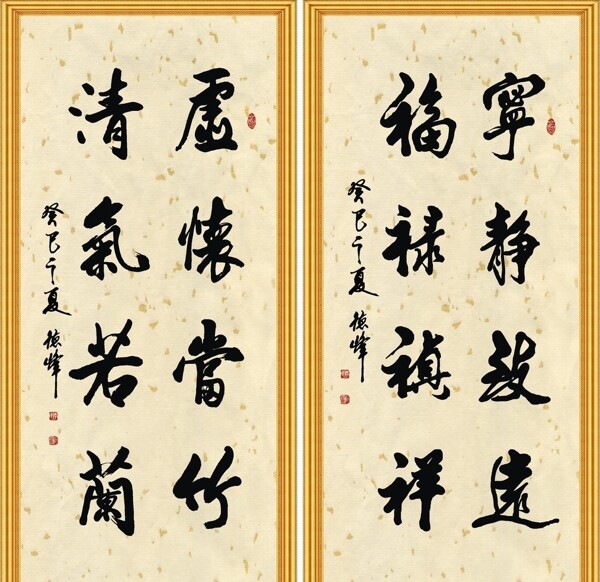 寧靜致遠
福祿禎祥
癸巳于夏 德峰
虛懷當竹
清氣若蘭
癸巳于夏 德峰